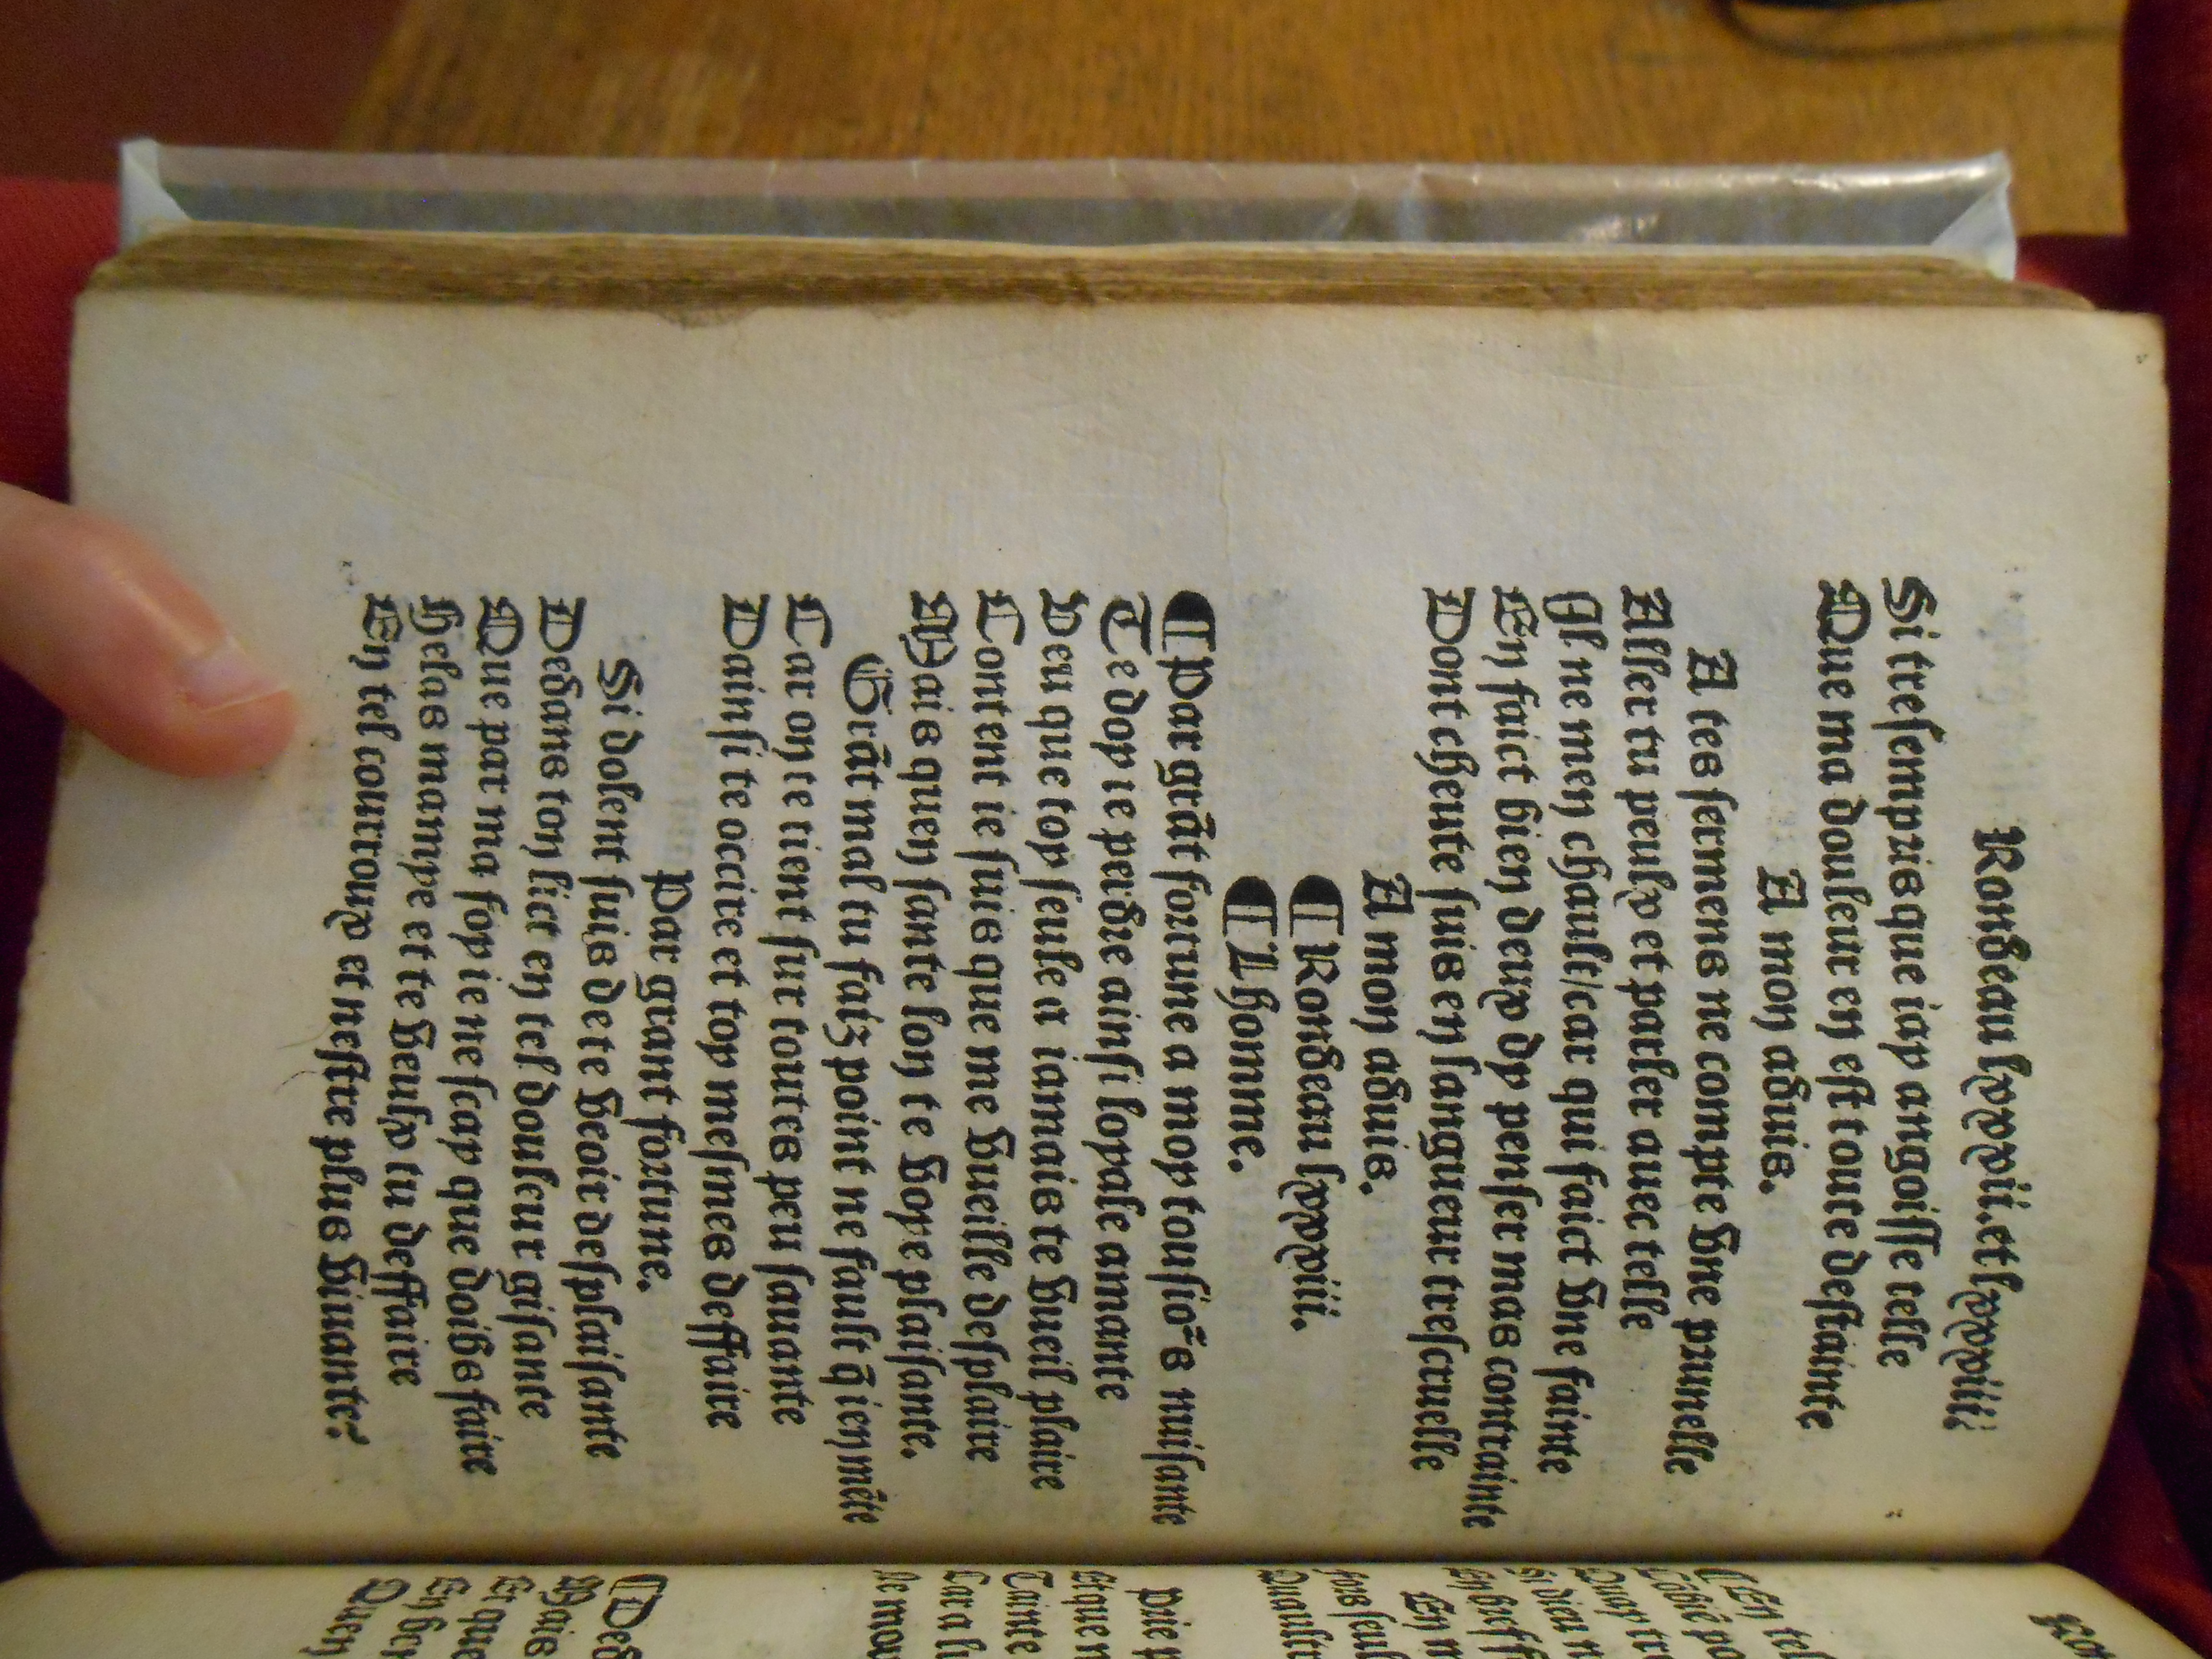 Rondeau lxxxii.et lxxxiii.
Si tresempris que iay angoisse telle
Que ma douleur en est toute destainte
A mon aduis.
A tes sermens ne compte vne prunelle
Aller tu peulx et parler auec telle
Il ne men chault/car qui faict vne fainte
En faict bien deux dy penser mas contrainte
Dont cheute suis en langueur trescruelle
A mon aduis.
¶ Rondeau lxxxiii.
¶ Lhomme.
¶ Par grãt fortune a moy tousiours nuisante
Te doy ie perdre ainsi loyale amante
Veu que toy seule a iamais te vueil plaire
Content ie suis que me vueille desplaire
Mais quen sante lon te voye plaisante.
Grãt mal tu faitz point ne fault q̃ ien mẽte
Car on te tient sur toutes peu sauante
Dainsi te occire et toy mesmes deffaire
Par grant fortune.
Si dolent suis de te veoir desplaisante
Dedans ton lict en tel douleur gisante
Que par ma foy ie ne scay que doibs faire
Helas mamye et te veulx tu deffaire
En tel courroux et nestre plus viuante?